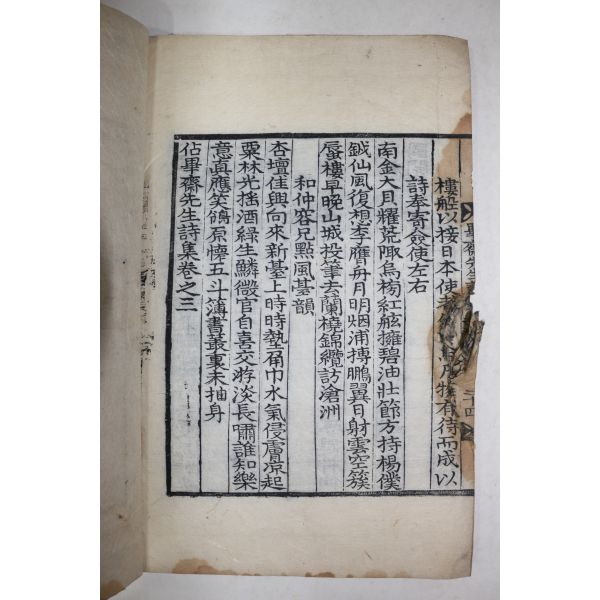 樓船以接日本使 有待而成以
詩奉寄僉使左右
南金大貝耀荒陬烏楊紅舷擁碧油壯節方持楊僕
鉞仙風復想李膺舟月明烟浦搏鵬翼日射雲空簇
蜃樓早晩山城投筆去蘭橈錦纜訪滄洲
和仲容兄點風䑓韻
杏壇佳興向來新䑓上時時墊角巾水氣侵膚凉起
粟林光搖酒綠生鱗微官自喜交游淡長嘯誰知樂
意真應笑鴒原懷五斗簿書叢裏未抽身
佔畢齋先生詩集卷之三
二十四